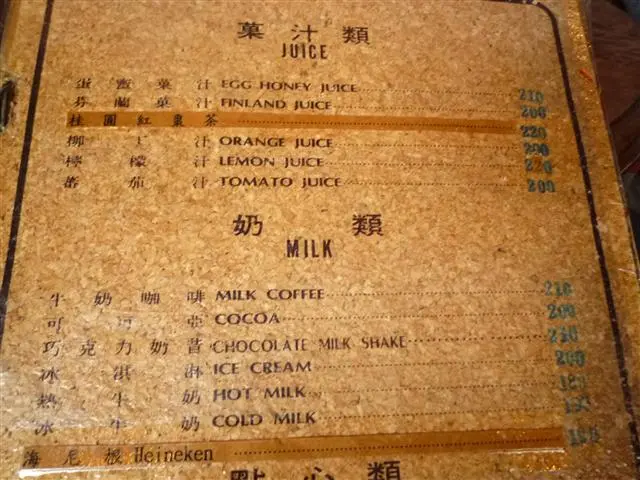 菓汁類
JUICE
蛋蜜菓汁 EGG HONEY JUICE 210
芬蘭菓汁 FINLAND JUICE 200
桂圓紅棗茶 220
柳丁汁 ORANGE JUICE 200
檸檬汁 LEMON JUICE 220
蕃茄汁 TOMATO JUICE 200
奶類
MILK
牛奶咖啡 MILK COFFEE 210
可可亞 COCOA 200
巧克力奶昔 CHOCOLATE MILK SHAKE 210
冰淇淋 ICE CREAM 200
熱牛奶 HOT MILK 180
冰牛奶 COLD MILK
海尼根 Heineken
點心類